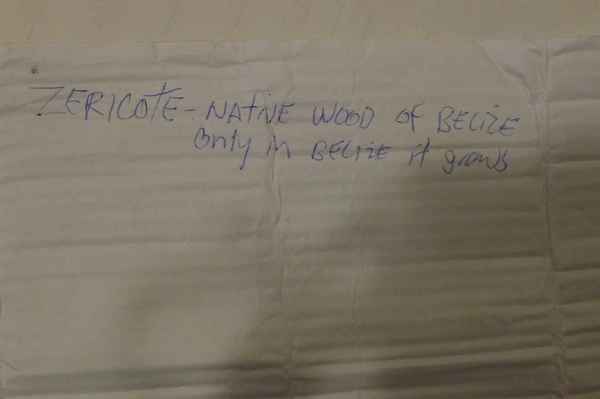 ZERICOTE - NATIVE WOOD OF BELIZE
Only in BELIZE it grows